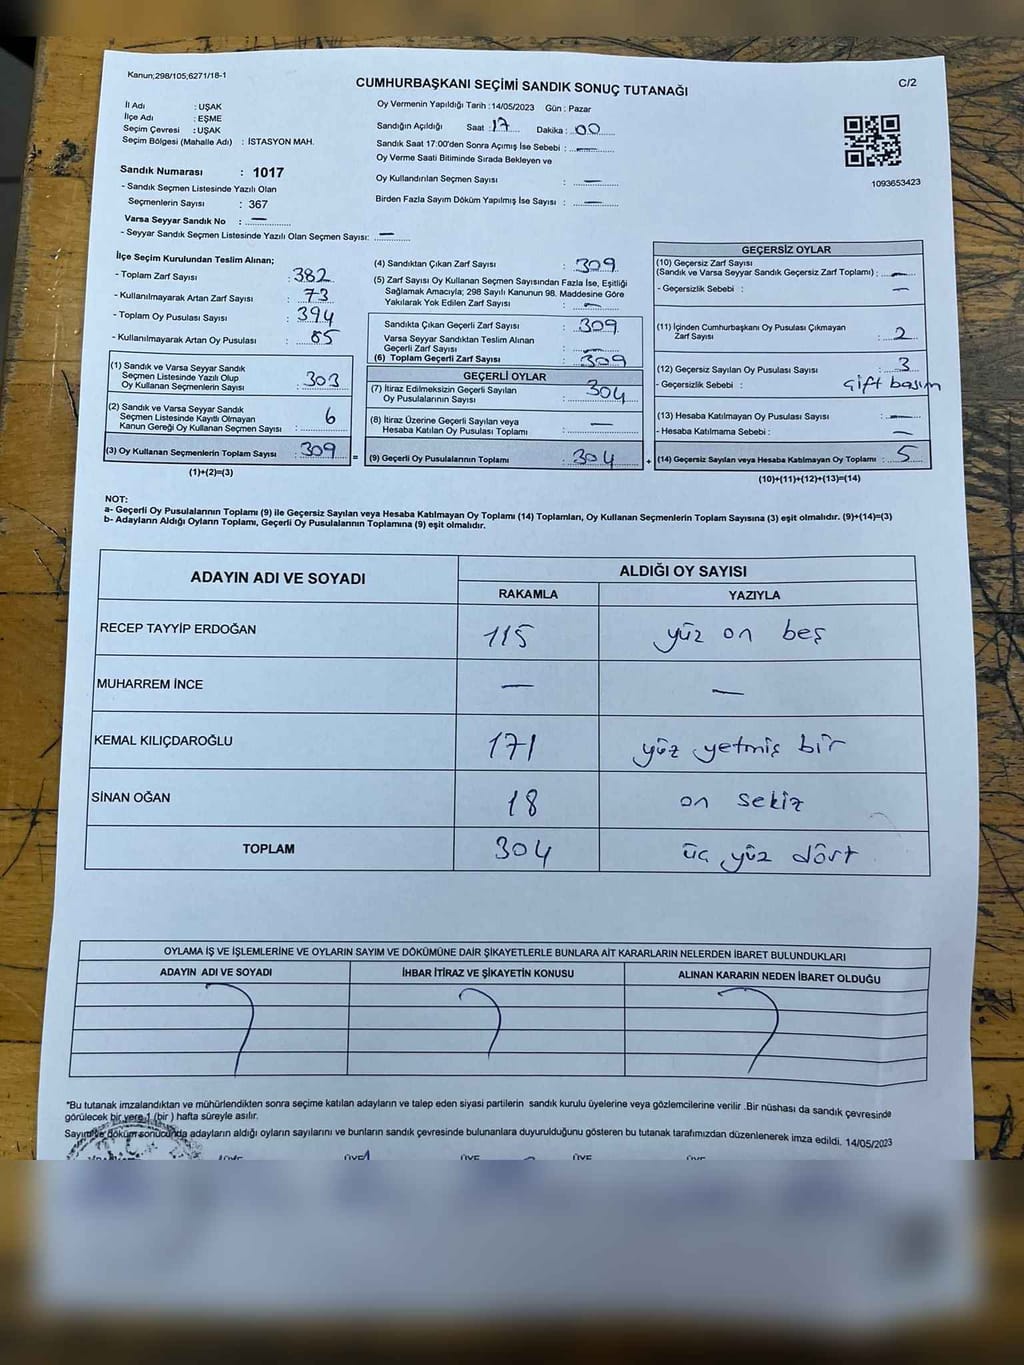 Kanun;298/105;6271/18-1
CUMHURBAŞKANI SEÇİMİ SANDIK SONUÇ TUTANAĞI
C/2
İl Adı : UŞAK
İlçe Adı : EŞME
Seçim Çevresi : UŞAK
Seçim Bölgesi (Mahalle Adı) : İSTASYON MAH.
Sandık Numarası : 1017
- Sandık Seçmen Listesinde Yazılı Olan
Seçmenlerin Sayısı : 367
Varsa Seyyar Sandık No : —
- Seyyar Sandık Seçmen Listesinde Yazılı Olan Seçmen Sayısı: —
Oy Vermenin Yapıldığı Tarih :14/05/2023 Gün : Pazar
Sandığın Açıldığı Saat : 17 Dakika : 00
Sandık Saat 17:00'den Sonra Açımış İse Sebebi : —
Oy Verme Saati Bitiminde Sırada Bekleyen ve
Oy Kullandırılan Seçmen Sayısı : —
Birden Fazla Sayım Döküm Yapılmış İse Sayısı : —
1093653423
İlçe Seçim Kurulundan Teslim Alınan;
- Toplam Zarf Sayısı : 382
- Kullanılmayarak Artan Zarf Sayısı : 73
- Toplam Oy Pusulası Sayısı : 394
- Kullanılmayarak Artan Oy Pusulası : 85
(1) Sandık ve Varsa Seyyar Sandık
Seçmen Listesinde Yazılı Olup
Oy Kullanan Seçmenlerin Sayısı : 303
(2) Sandık ve Varsa Seyyar Sandık
Seçmen Listesinde Kayıtlı Olmayan
Kanun Gereği Oy Kullanan Seçmen Sayısı : 6
(3) Oy Kullanan Seçmenlerin Toplam Sayısı : 309
(1)+(2)=(3)
=
(4) Sandıktan Çıkan Zarf Sayısı : 309
(5) Zarf Sayısı Oy Kullanan Seçmen Sayısından Fazla İse, Eşitliği
Sağlamak Amacıyla; 298 Sayılı Kanunun 98. Maddesine Göre
Yakılarak Yok Edilen Zarf Sayısı : —
Sandıkta Çıkan Geçerli Zarf Sayısı : 309
Varsa Seyyar Sandıktan Teslim Alınan
Geçerli Zarf Sayısı : —
(6) Toplam Geçerli Zarf Sayısı : 309
GEÇERLİ OYLAR
(7) İtiraz Edilmeksizin Geçerli Sayılan
Oy Pusulalarının Sayısı : 304
(8) İtiraz Üzerine Geçerli Sayılan veya
Hesaba Katılan Oy Pusulası Toplamı : —
(9) Geçerli Oy Pusulalarının Toplamı : 304
+
GEÇERSİZ OYLAR
(10) Geçersiz Zarf Sayısı
(Sandık ve Varsa Seyyar Sandık Geçersiz Zarf Toplamı) : —
- Geçersizlik Sebebi : —
(11) İçinden Cumhurbaşkanı Oy Pusulası Çıkmayan
Zarf Sayısı : 2
(12) Geçersiz Sayılan Oy Pusulası Sayısı : 3
- Geçersizlik Sebebi : çift basım
(13) Hesaba Katılmayan Oy Pusulası Sayısı : —
- Hesaba Katılmama Sebebi : —
(14) Geçersiz Sayılan veya Hesaba Katılmayan Oy Toplamı : 5
(10)+(11)+(12)+(13)=(14)
NOT:
a- Geçerli Oy Pusulalarının Toplamı (9) ile Geçersiz Sayılan veya Hesaba Katılmayan Oy Toplamı (14) Toplamları, Oy Kullanan Seçmenlerin Toplam Sayısına (3) eşit olmalıdır. (9)+(14)=(3)
b- Adayların Aldığı Oyların Toplamı, Geçerli Oy Pusulalarının Toplamına (9) eşit olmalıdır.
ADAYIN ADI VE SOYADI
ALDIĞI OY SAYISI
RAKAMLA YAZIYLA
RECEP TAYYİP ERDOĞAN 115 yüz on beş
MUHARREM İNCE — —
KEMAL KILIÇDAROĞLU 171 yüz yetmiş bir
SİNAN OĞAN 18 on sekiz
TOPLAM 304 üç yüz dört
OYLAMA İŞ VE İŞLEMLERİNE VE OYLARIN SAYIM VE DÖKÜMÜNE DAİR ŞİKAYETLERLE BUNLARA AİT KARARLARIN NELERDEN İBARET BULUNDUKLARI
ADAYIN ADI VE SOYADI İHBAR İTİRAZ VE ŞİKAYETİN KONUSU ALINAN KARARIN NEDEN İBARET OLDUĞU
*Bu tutanak imzalandıktan ve mühürlendikten sonra seçime katılan adayların ve talep eden siyasi partilerin sandık kurulu üyelerine veya gözlemcilerine verilir .Bir nüshası da sandık çevresinde
görülecek bir yere 1 (bir ) hafta süreyle asılır.
Sayım ve döküm sonucunda adayların aldığı oyların sayılarını ve bunların sandık çevresinde bulunanlara duyurulduğunu gösteren bu tutanak tarafımızdan düzenlenerek imza edildi. 14/05/2023
T.C.
ÜYE ÜYE ÜYE ÜYE ÜYE